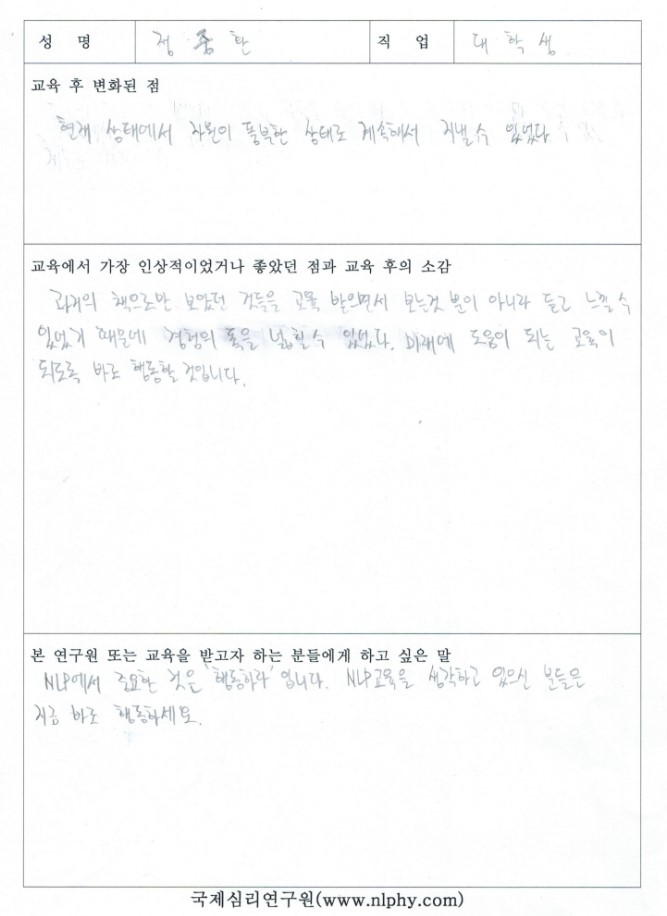 성 명 정 종 탄 직 업 대 학 생
교육 후 변화된 점
현재 상태에서 자원이 풍부한 상태로 계속해서 지낼 수 있었다
교육에서 가장 인상적이었거나 좋았던 점과 교육 후의 소감
과거의 책으로만 보았던 것들을 교육 받으면서 보는것 뿐이 아니라 듣고 느낄 수
있었기 때문에 경험의 폭을 넓힐 수 있었다. 미래에 도움이 되는 교육이
되도록 바로 행동할 것입니다.
본 연구원 또는 교육을 받고자 하는 분들에게 하고 싶은 말
NLP에서 중요한 것은 '행동하라' 입니다. NLP교육을 생각하고 있으신 분들은
지금 바로 행동하세요.
국제심리연구원(www.nlphy.com)